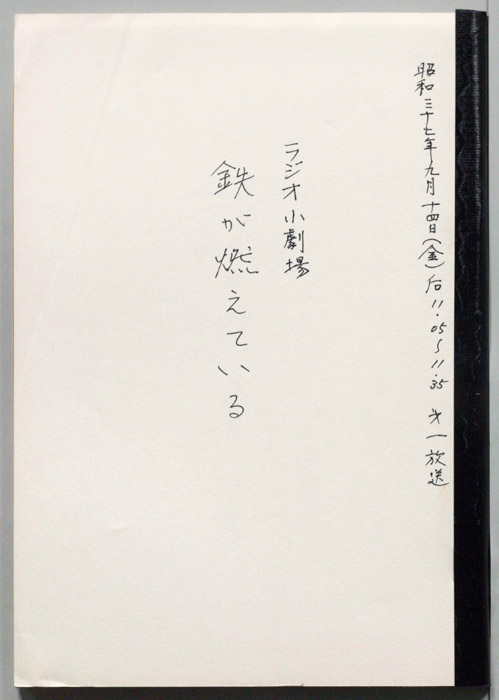 昭和三十七年九月十四日(金)后11.05〜11.35 才一放送
ラジオ小劇場
鉄が燃えている